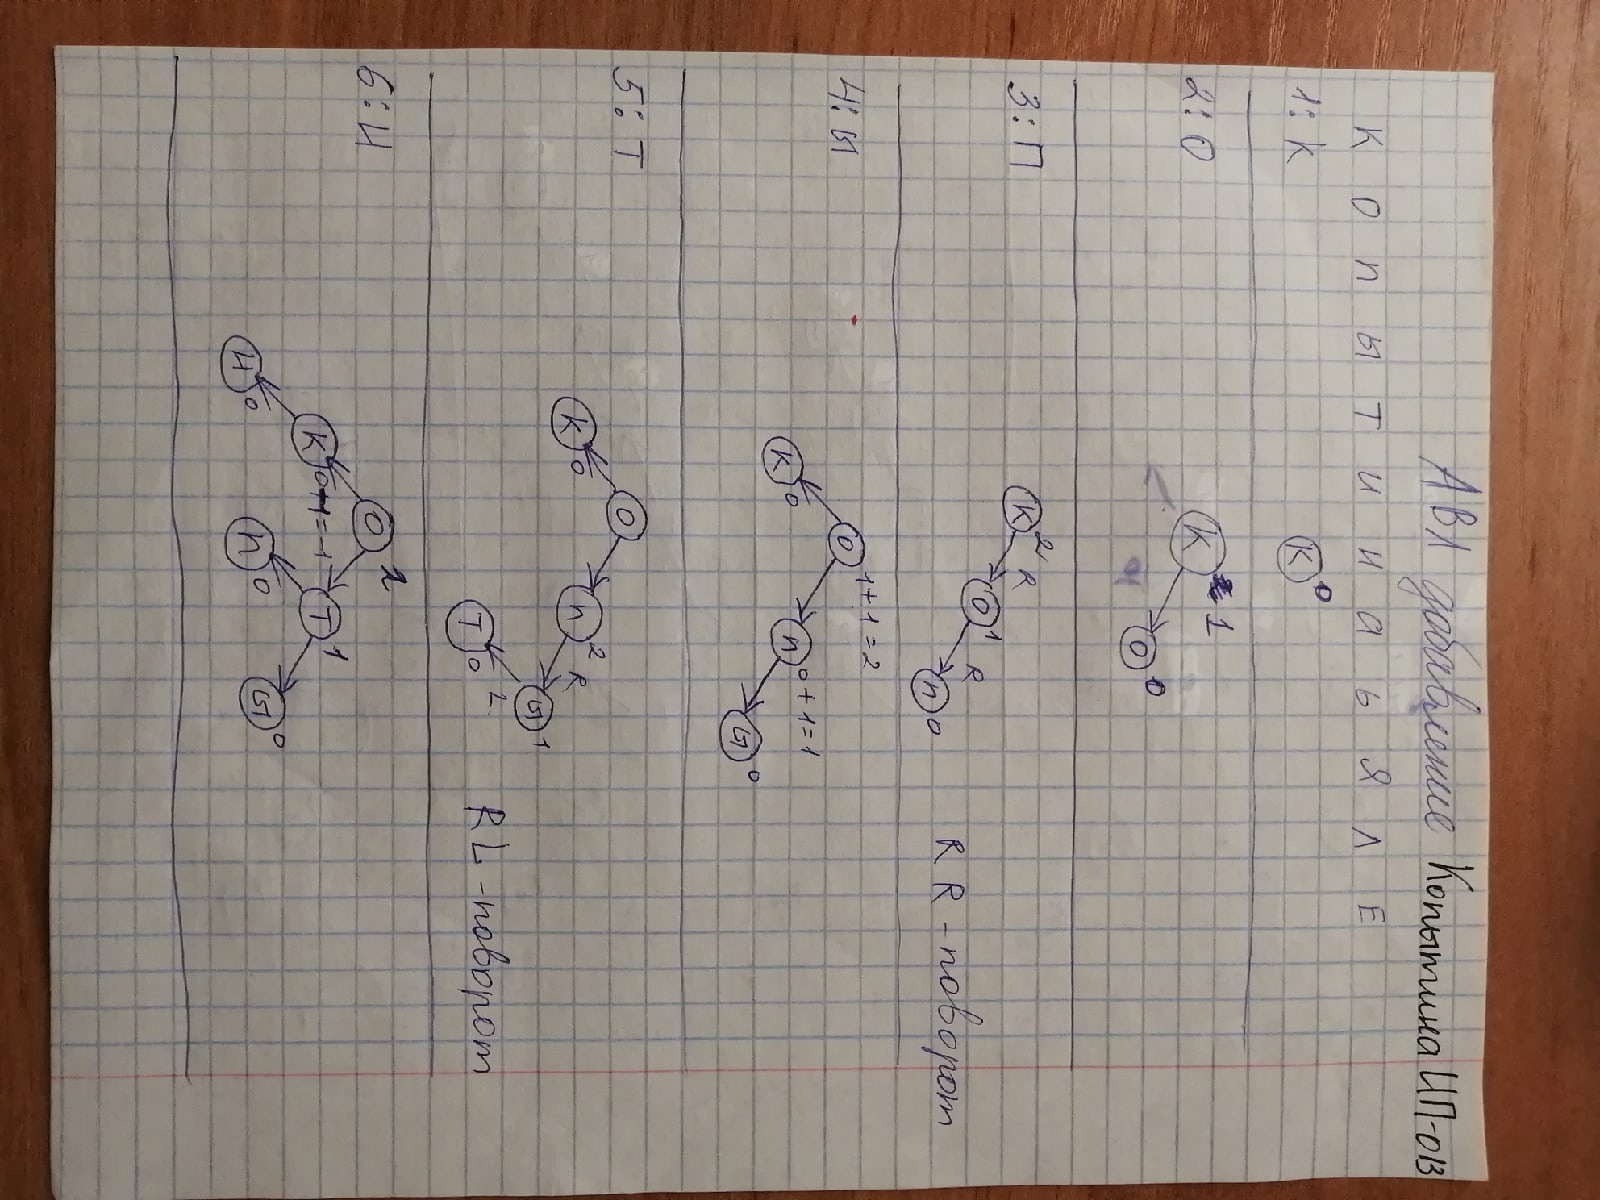 АВЛ добавление Копытина ИП-013
К О П Ы Т И Н А Ь Я Л Е
1: К
К 0
2: О
К 1
О 0
3: П
К 2 R
О 1 R
П 0
RR-поворот
4: Ы
О 1+1=2
К 0 П 0+1=1
Ы 0
5: Т
О
К 0 П 2 R
Ы 1
Т 0 L
RL-поворот
6: И
О 2
К 0+1=-1 Т 1
И 0 П 0 Ы 0